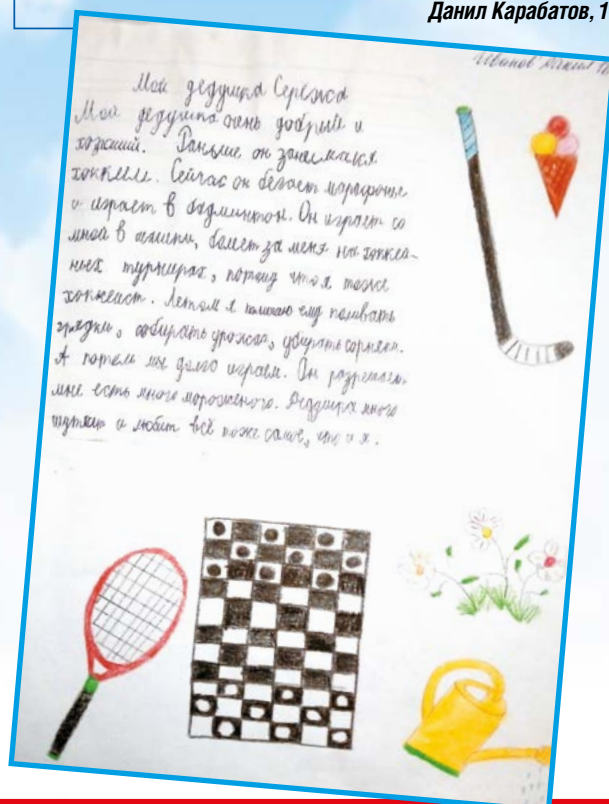 Данил Карабатов, 1
Иванов
Мой дедушка Сережа
Мой дедушка очень добрый и
хороший. Раньше он занимался
хоккеем. Сейчас он бегает марафоны
и играет в бадминтон. Он играет со
мной в шашки, болеет за меня на хоккей-
ных турнирах, потому что я тоже
хоккеист. Летом я помогаю ему поливать
грядки, собирать урожай, убирать сорняки.
А потом мы долго играем. Он разрешает
мне есть много мороженого. Дедушка много
шутит и любит всё тоже самое, что и я.